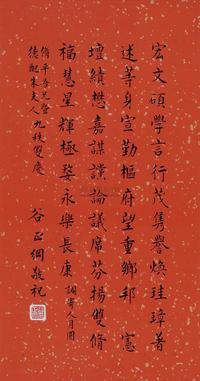 宏文碩學言行茂雋譽煥珪璋著
述等身宣勤樞府望重鄉邦 憲
壇績懋嘉謀讜論議席芬揚雙脩
福慧星輝極婺永樂長康 調寄人月圓
脩平吾兄暨
德配朱夫人九秩雙慶
谷正綱敬祝